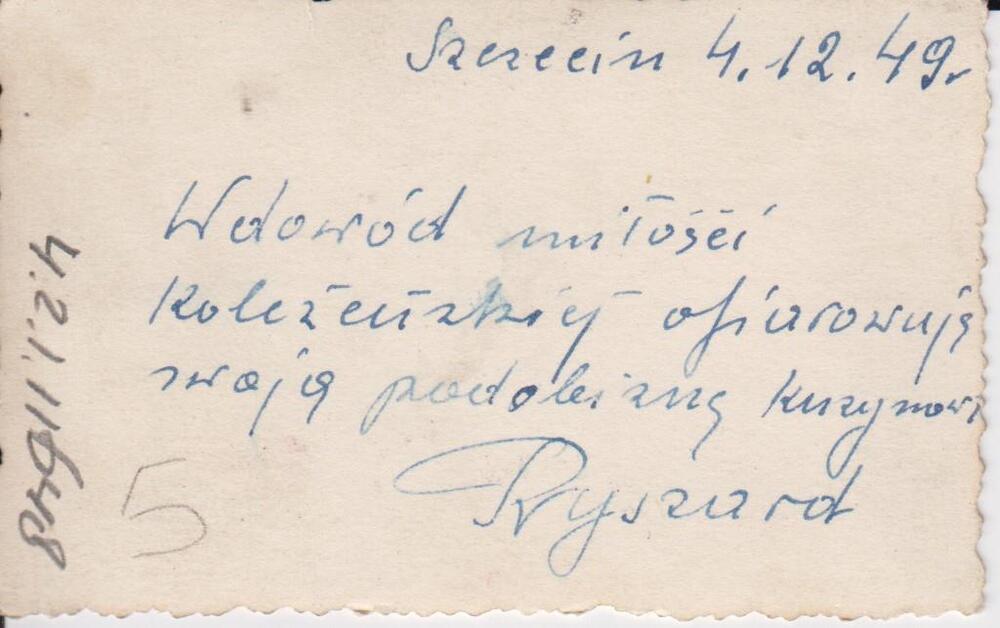 Szczecin 4.12.49r
Wdowód miłości
Koleżeńskiej ofiarowuję
swoją podobiznę kuzynowi
Ryszard
5